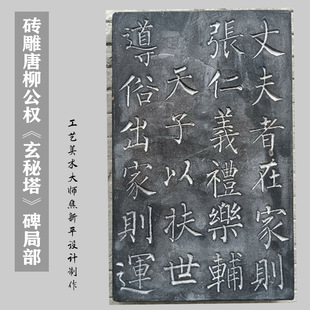 砖雕唐柳公权《玄秘塔》碑局部
工艺美术大师焦新平设计制作
丈夫者在家則
張仁義禮樂輔
天子以扶世
導俗出家則運